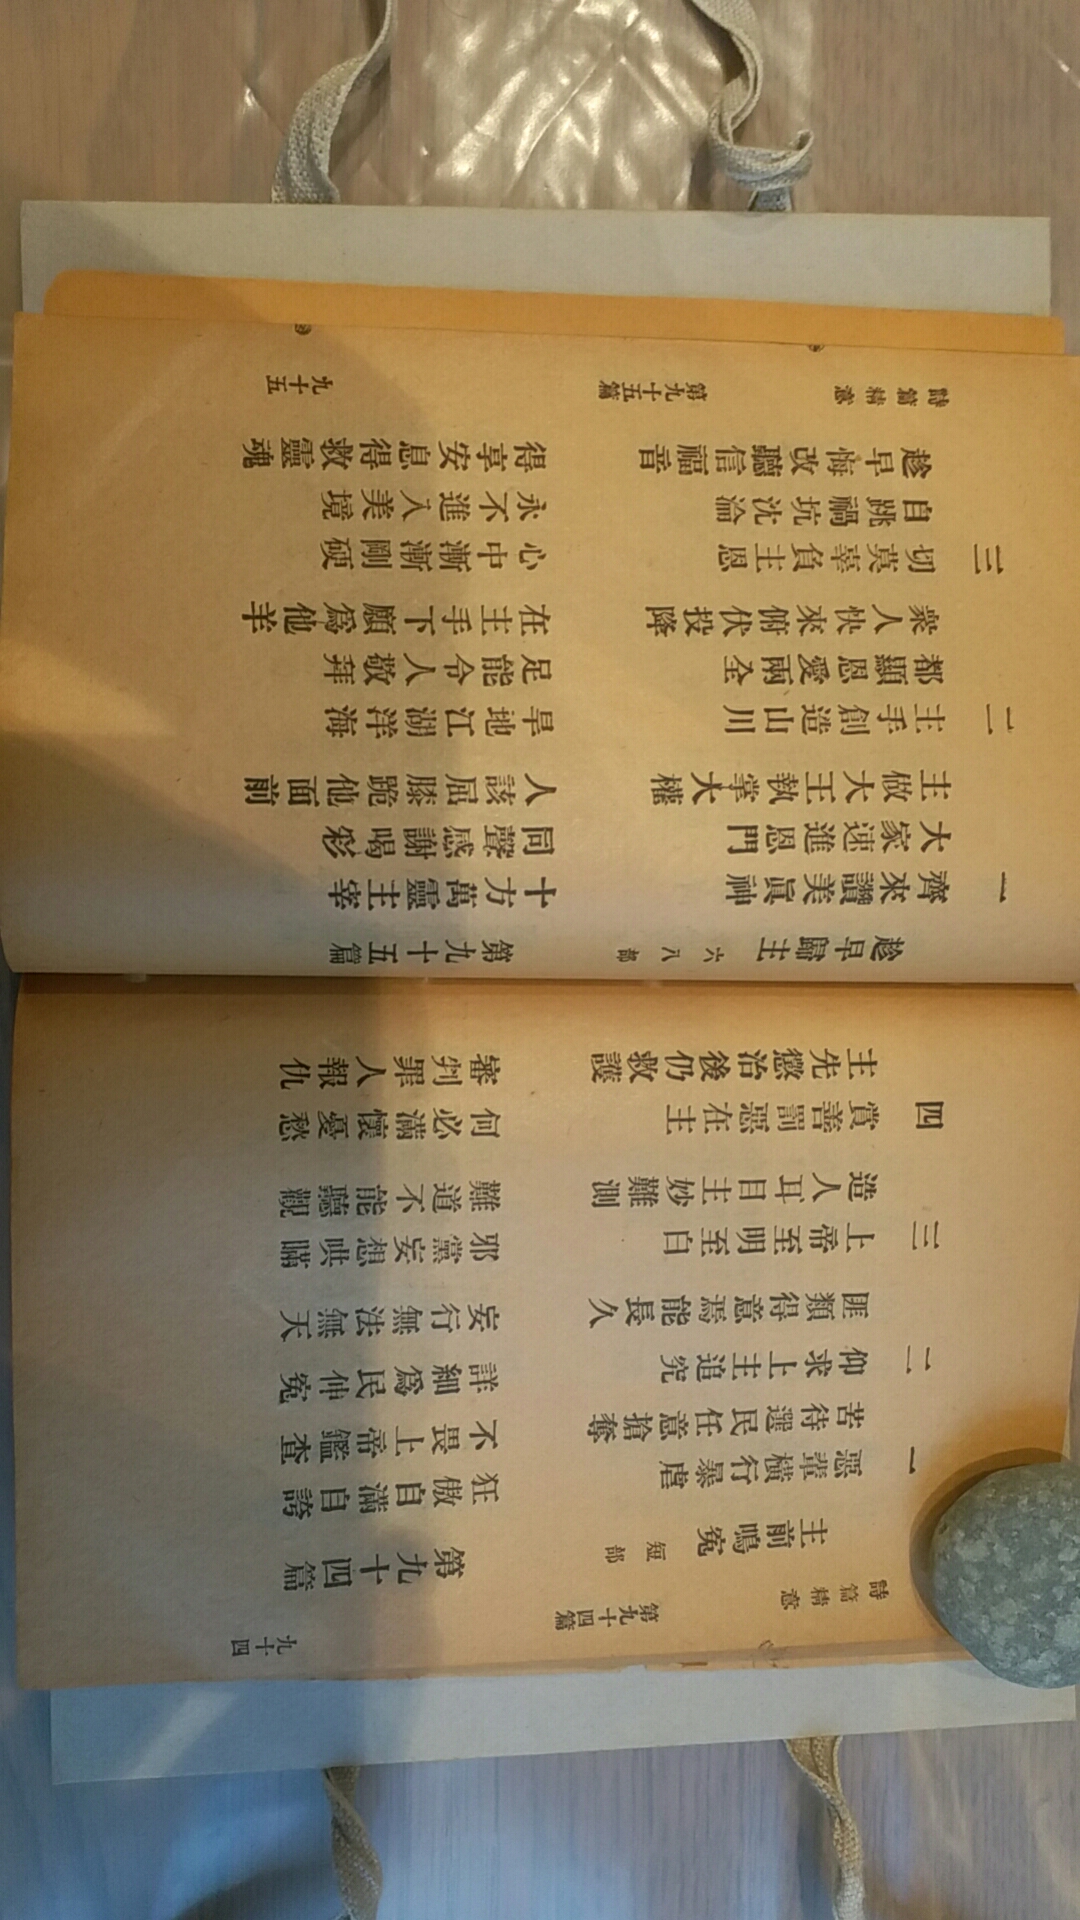 詩篇精意 第九十四篇 九十四
主前鳴冤 短部 第九十四篇
一 惡輩橫行暴虐 狂傲自滿自誇
苦待選民任意搶奪 不畏上帝鑑查
二 仰求上主追究 詳細爲民伸冤
匪類得意焉能長久 妄行無法無天
三 上帝至明至白 邪黨妄想哄瞞
造人耳目主妙難測 難道不能聽觀
四 賞善罰惡在主 何必滿懷憂愁
主先懲治後仍救護 審判罪人報仇
趁早歸主 六八部 第九十五篇
一 齊來讚美眞神 十方萬靈主宰
大家速進恩門 同聲感謝喝彩
主做大王執掌大權 人該屈膝跪他面前
二 主手創造山川 旱地江湖洋海
都顯恩愛兩全 足能令人敬拜
衆人快來俯伏投降 在主手下願爲他羊
三 切莫辜負主恩 心中漸漸剛硬
自跳禍坑沈淪 永不進入美境
趁早悔改聽信福音 得享安息得救靈魂
詩篇精意 第九十五篇 九十五